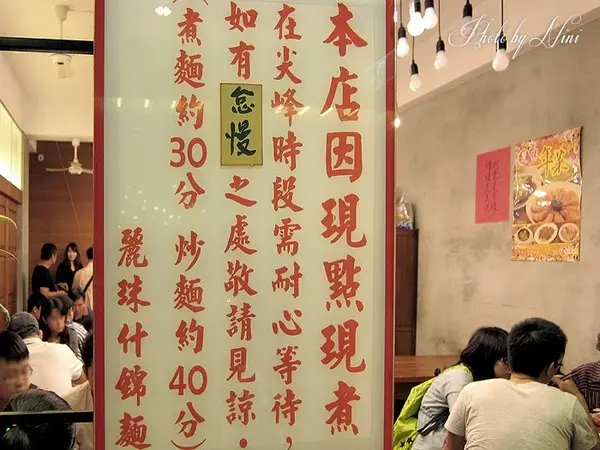 本店因現點現煮
在尖峰時段需耐心等待，
如有怠慢之處敬請見諒．
（煮麵約30分 炒麵約40分）
麗珠什錦麵
Photo by Nini